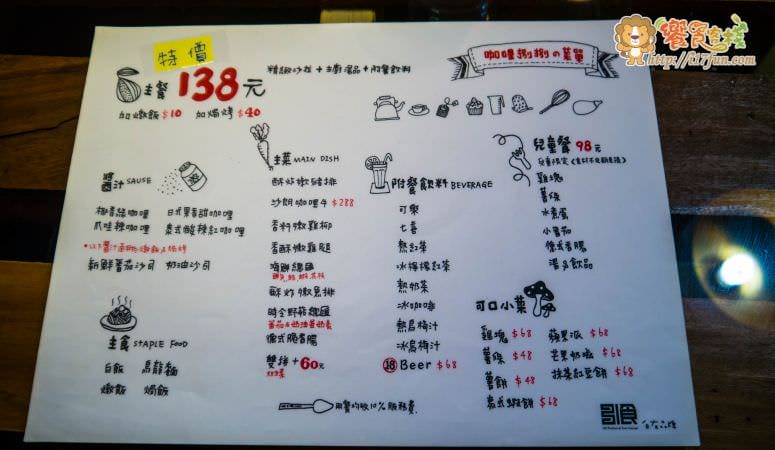 饗食客棧
http://fi7fun.com
咖哩捌捌の菜單
特價
主餐 138元
精緻沙拉+主廚湯品+附餐飲料
加燉飯$10 加焗烤$40
醬汁 SAUSE
椰香綠咖哩 日式果香甜咖哩
爪哇辣咖哩 泰式酸辣紅咖哩
新鮮蕃茄沙司 奶油沙司
主食 STAPLE FOOD
白飯 烏龍麵
燉飯 焗飯
主菜 MAIN DISH
酥炸嫩豬排
沙朗咖哩牛 $288
香料嫩雞柳
香酥嫩雞腿
海鮮總匯
酥炸嫩魚排
時令野菇總匯
德式脆香腸
雙拼+60元
附餐飲料 BEVERAGE
可樂
七喜
熱紅茶
冰檸檬紅茶
熱奶茶
冰咖啡
熱烏梅汁
冰烏梅汁
⑱Beer $68
兒童餐 98元
雞塊
薯條
水煮蛋
小番茄
德式香腸
湯&飲品
可口小菜
雞塊 $68 蘋果派 $68
薯條 $48 芒果奶酪 $68
薯餅 $48 抹茶紅豆餅 $68
泰式蝦餅 $68
用餐均收10%服務費.